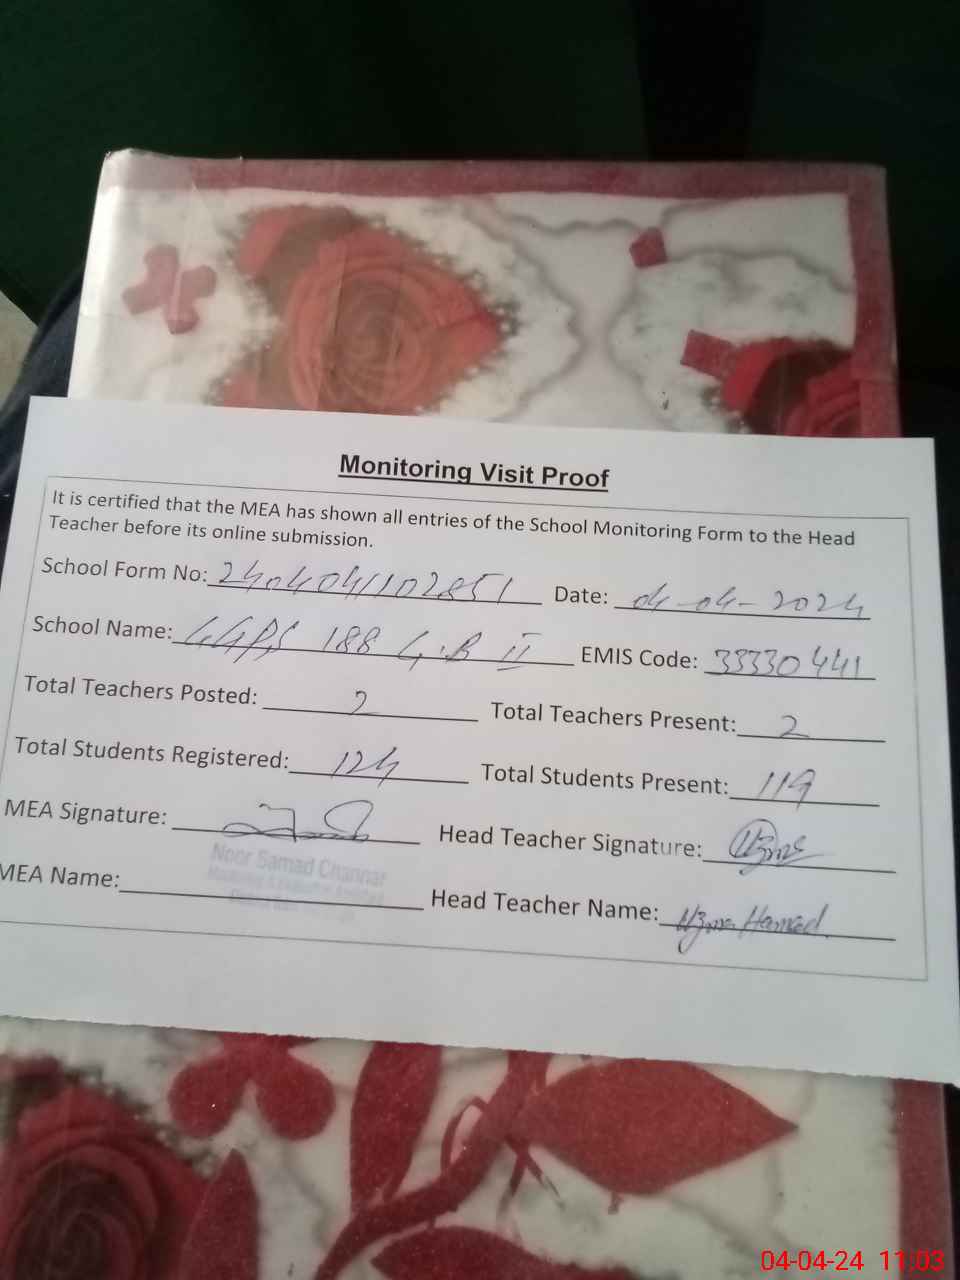 Monitoring Visit Proof
It is certified that the MEA has shown all entries of the School Monitoring Form to the Head
Teacher before its online submission.
School Form No: 240404102851 Date: 04-04-2024
School Name: GGPS 188 G.B II EMIS Code: 33330441
Total Teachers Posted: 2 Total Teachers Present: 2
Total Students Registered: 124 Total Students Present: 119
MEA Signature: Head Teacher Signature: Uzma
Noor Samad Channar
MEA Name: Head Teacher Name: Uzma Hamad
04-04-24 11:03